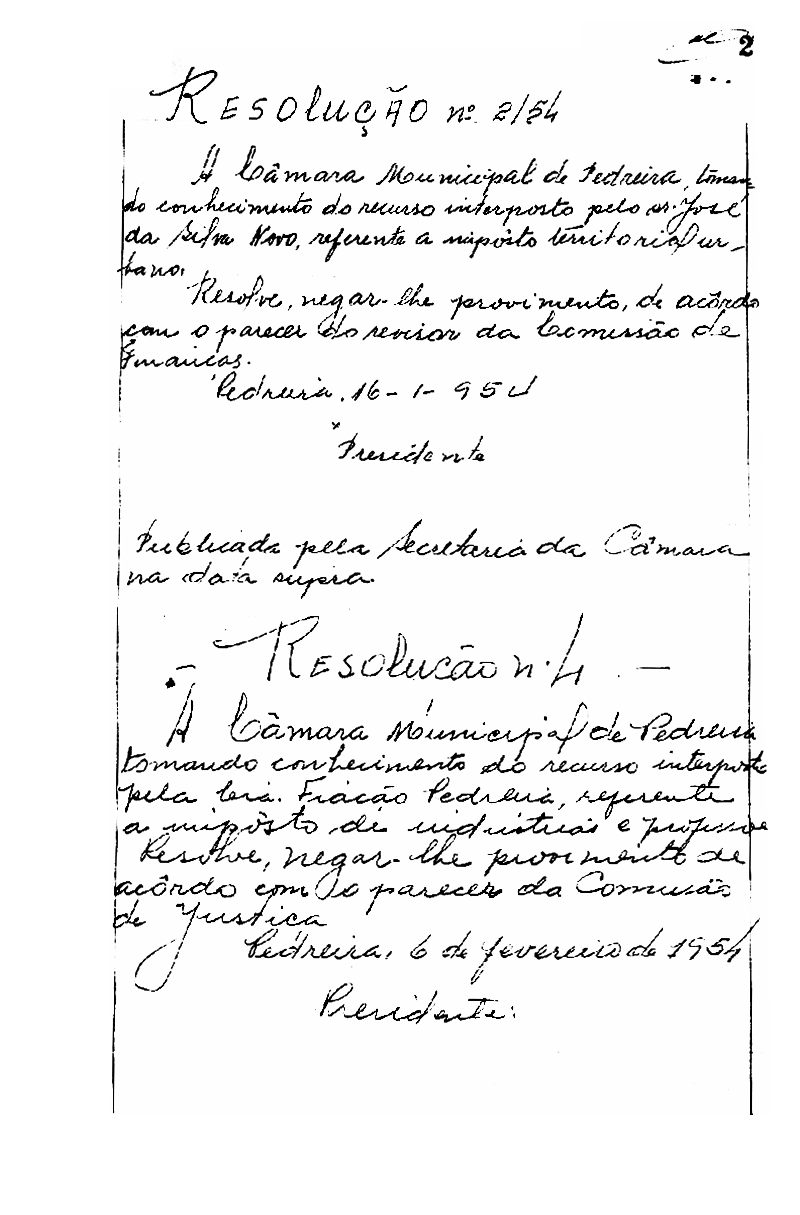 2
Resolução nº 2/54
A Câmara Municipal de Pedreira, toman
do conhecimento do recurso interposto pelo sr. José
da Silva Novo, referente a impôsto territorial ur-
bano.
Resolve, negar-lhe provimento, de acôrdo
com o parecer do revisor da Comissão de
Finanças.
Pedreira, 16-1-954
Presidente
Publicada pela Secretaria da Câmara
na data supra.
- Resolução n. 4 -
A Câmara Municipal de Pedreira
tomando conhecimento do recurso interposto
pela Cia. Fiação Pedreira, referente
a impôsto de industrias e professoe
Resolve, negar-lhe provimento de
acôrdo com o parecer da Comissão
de Justiça
Pedreira, 6 de fevereiro de 1954
Presidente: